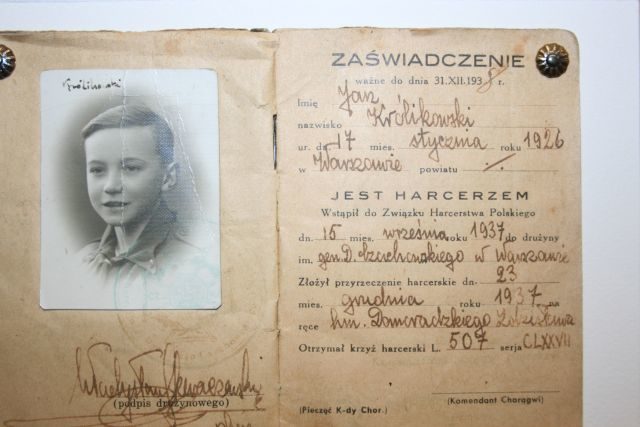 Królikowski
(podpis drużynowego)
ZAŚWIADCZENIE
ważne do dnia 31.XII.1938 r.
Imię Jan
nazwisko Królikowski
ur. dn. 17 mies. stycznia roku 1926
w Warszawie powiatu ./.
JEST HARCERZEM
Wstąpił do Związku Harcerstwa Polskiego
dn. 15 mies. września roku 1937 do drużyny
im. gen. D. w Warszawie
Złożył przyrzeczenie harcerskie dn. 23
mies. grudnia roku 1937 na
ręce hm. Domoradzkiego
Otrzymał krzyż harcerski L. 507 serja CLXXVII
(Pieczęć K-dy Chor.)
(Komendant Chorągwi)